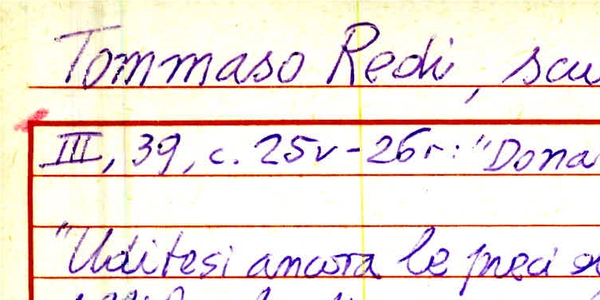 Tommaso Redi, scu
III, 39, c. 25v-26r: "Dona
"Uditesi ancora le preci